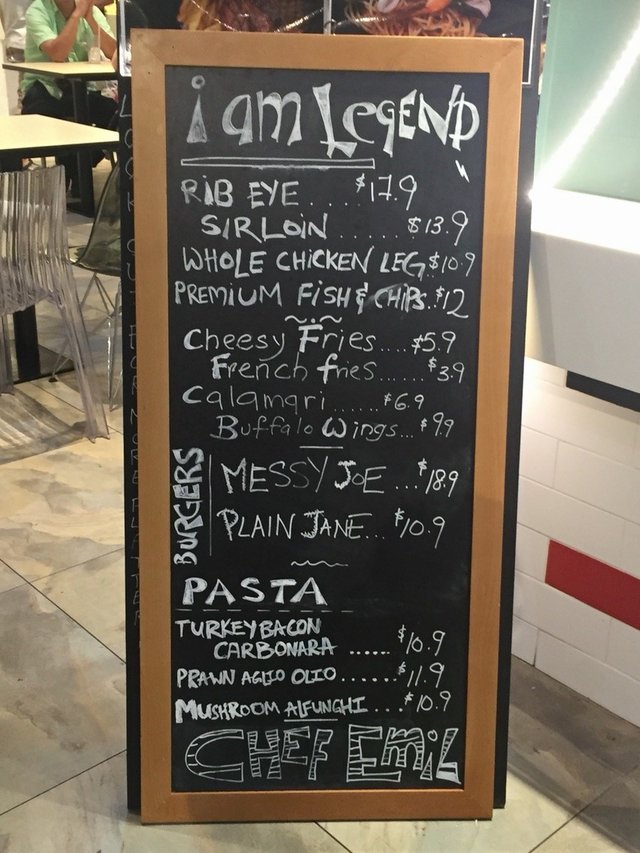 i am LEGEND
RIB EYE....$17.9
SIRLOIN........$13.9
WHOLE CHICKEN LEG $10.9
PREMIUM FISH & CHIPS..$12
Cheesy Fries....$5.9
French fries......$3.9
Calamari......$6.9
Buffalo Wings...$9.9
BURGERS
MESSY JOE...$18.9
PLAIN JANE...$10.9
PASTA
TURKEY BACON
CARBONARA.....$10.9
PRAWN AGLIO OLIO......$11.9
MUSHROOM ALFUNGHI...$10.9
CHEF EMIL
LOOK OUT FOR MORE PLATTER